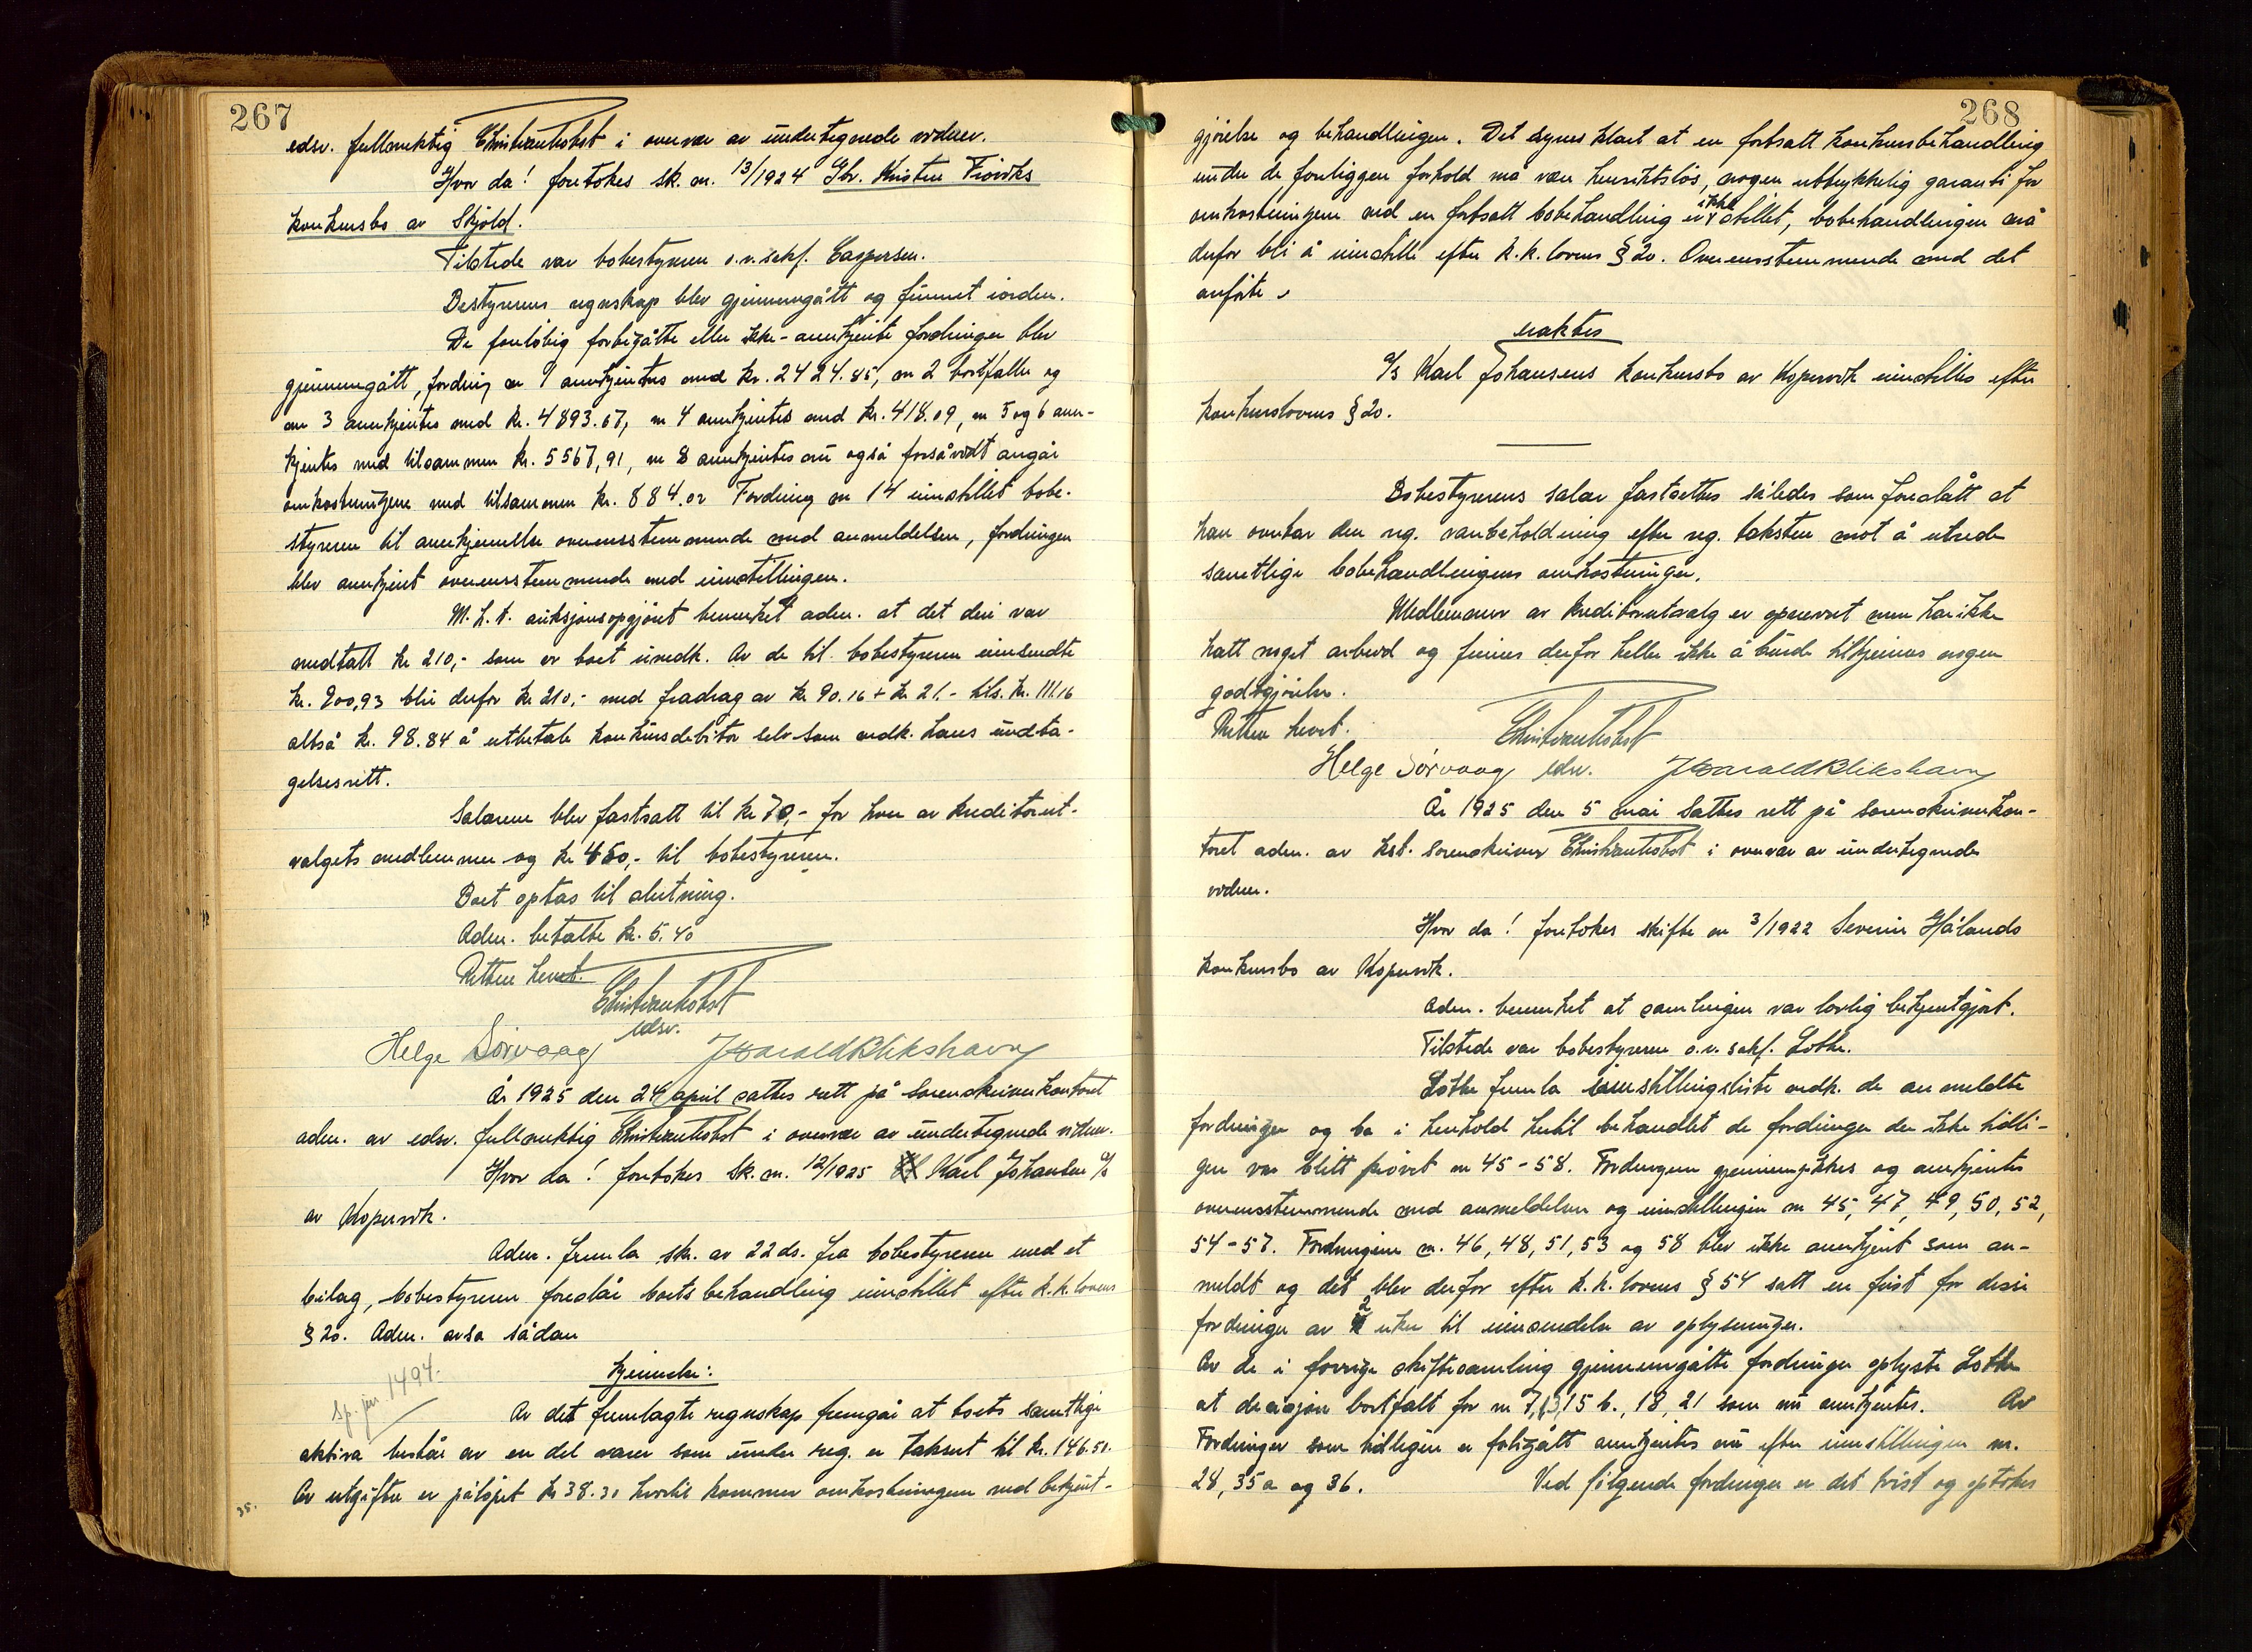 267
edsv. fullmektig Christian Kobst i overvær av undertegnede vidner.
Hvor da! foretokes sk. nr. 13/1924 Gbr. Kristen Fiøviks
konkursbo av Skjold.
Tilstede var bobestyreren o.r.sakf. Caspersen.
Bestyrerens regnskap blev gjennemgått og funnet iorden.
De foreløbig forbigåtte eller ikke-anerkjente fordringer blev
gjennemgått, fordring nr 1 anerkjentes med kr. 2424.85, nr 2 bortfaller og
nr 3 anerkjentes med kr. 4893.67, nr 4 anerkjentes med kr. 418.09, nr 5 og 6 aner-
kjentes med tilsammen kr. 5567,91, nr 8 anerkjentes nu også forsåvidt angår
omkostningene med tilsammen kr. 884.02 Fordring nr 14 innstillet bobe-
styreren til anerkjennelse overensstemmende med anmeldelsen, fordringen
blev anerkjent overensstemmende med innstillingen.
M.h.t. auksjonsopgjøret bemerket adm. at det deri var
medtatt kr 210,- som er boet uvedk. Av de til bobestyreren innsendte
kr. 900,93 blir derfor kr 210,- med fradrag av kr 90.16 + kr 21.- tils. kr. 111.16
altså kr. 98.84 å utbetale konkursdebitor selv som vedk. hans undta-
gelsesrett.
Salærene blev fastsatt til kr 70,- for hver av kreditorut-
valgets medlemmer og kr 450,- til bobestyreren.
Boet optas til slutning.
Adm. betalte kr. 5.40
Retten hevet.
Christian Kobst
edsv.
Helge Sørvaag Harald Blikshavn
År 1925 den 24 april sattes rett på sorenskriverkontoret
adm. av edsv. fullmektig Christian Kobst i overvær av undertegnede vidner.
Hvor da! foretokes sk. nr. 12/1925 Karl Johansen A/S
av Kopervik.
Adm. fremla skr. av 22 ds. fra bobestyreren med et
bilag, bobestyreren foreslår boets behandling innstillet efter k.k. lovens
§ 20. Adm. avsa sådan
kjennelse:
Sp. jnr 1494.
Av det fremlagte regnskap fremgår at boets samtlige
aktiva består av en del varer som under reg. er taksert til kr. 146.50.
Av utgifter er påløpet kr 38.30 hvortil kommer omkostningene ved bekjent-
35.
268
gjørelse og behandlingen. Det synes klart at en fortsatt konkursbehandling
under de foreliggen forhold må være hensiktsløs, nogen uttrykkelig garanti for
omkostningene ved en fortsatt bobehandling er ikke stillet, bobehandlingen må
derfor bli å innstille efter k.k. lovens § 20. Overensstemmende med det
anførte
eraktes
A/S Karl Johansens konkursbo av Kopervik innstilles efter
konkurslovens § 20.
Bobestyrerens salær fastsettes således som foreslått at
han overtar den reg. varebeholdning efter reg. taksten mot å utrede
samtlige bobehandlingens omkostninger.
Medlemmer av kreditorutvalg er opnevnt men har ikke
hatt noget arbeid og finnes derfor heller ikke å burde tilkjennes nogen
godtgjørelse.
Retten hevet.
Christian Kobst
Helge Sørvaag edsv. Harald Blikshavn
År 1925 den 5 mai sattes rett på sorenskriverkon-
toret adm. av kst. sorenskriver Christian Kobst i overvær av undertegnede
vidner.
Hvor da! foretokes skifte nr 3/1922 Severin Hålands
konkursbo av Kopervik.
Adm. bemerket at samlingen var lovlig bekjentgjort.
Tilstede var bobestyreren o.r. sakf. Lothe.
Lothe fremla innstillingsliste vedk. de anmeldte
fordringer og ba i henhold hertil behandlet de fordringer der ikke tidli-
gere var blitt prøvet nr 45-58. Fordringene gjennemgikkes og anerkjentes
overensstemmende med anmeldelsen og innstillingen nr 45, 47, 49, 50, 52,
54-57. Fordringene nr. 46, 48, 51, 53 og 58 blev ikke anerkjent som an-
meldt og det blev derfor efter k.k. lovens § 54 satt en frist for disse
fordringer av 2 uker til innsendelse av oplysninger.
Av de i forrige skiftesamling gjennemgåtte fordringer oplyste Lothe
at decisjon bortfalt for nr 7, 13, 15 b., 18, 21 som nu anerkjentes. Av
Fordringer som tidligere er forbigått anerkjentes nu efter innstillingen nr.
28, 35a og 36. Ved følgende fordringer er det tvist og optokes